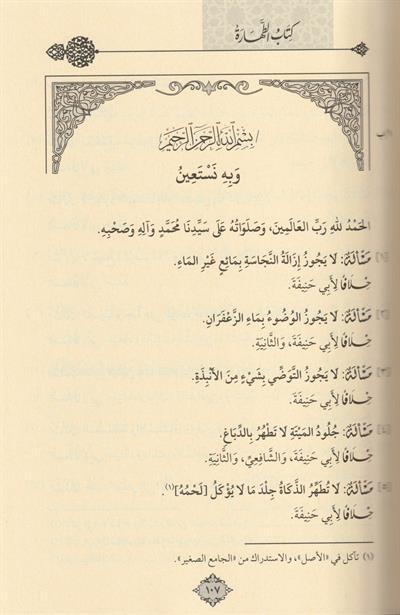 كِتَابُ الطَّهَارَةِ
بِسْمِ اللَّهِ الرَّحْمَنِ الرَّحِيمِ
وَبِهِ نَسْتَعِينُ
الحَمْدُ للهِ رَبِّ العَالَمِينَ، وَصَلَوَاتُهُ عَلَى سَيِّدِنَا مُحَمَّدٍ وَآلِهِ وَصَحْبِهِ.
[١] مَسْأَلَةٌ: لَا يَجُوزُ إِزَالَةُ النَّجَاسَةِ بِمَائِعٍ غَيْرِ المَاءِ.
خِلَافًا لِأَبِي حَنِيفَةَ.
[٢] مَسْأَلَةٌ: لَا يَجُوزُ الوُضُوءُ بِمَاءِ الزَّعْفَرَانِ.
خِلَافًا لِأَبِي حَنِيفَةَ، وَالثَّانِيَةِ.
[٣] مَسْأَلَةٌ: لَا يَجُوزُ التَّوَضِّي بِشَيْءٍ مِنَ الأَنْبِذَةِ.
خِلَافًا لِأَبِي حَنِيفَةَ.
[٤] مَسْأَلَةٌ: جُلُودُ المَيْتَةِ لَا تَطْهُرُ بِالدِّبَاغِ.
خِلَافًا لِأَبِي حَنِيفَةَ، وَالشَّافِعِيِّ، وَالثَّانِيَةِ.
[٥] مَسْأَلَةٌ: لَا تُطَهِّرُ الذَّكَاةُ جِلْدَ مَا لَا يُؤْكَلُ [لَحْمُهُ](١).
خِلَافًا لِأَبِي حَنِيفَةَ.
(١) تآكل في «الأصل»، والاستدراك من «الجامع الصغير».
١٠٧